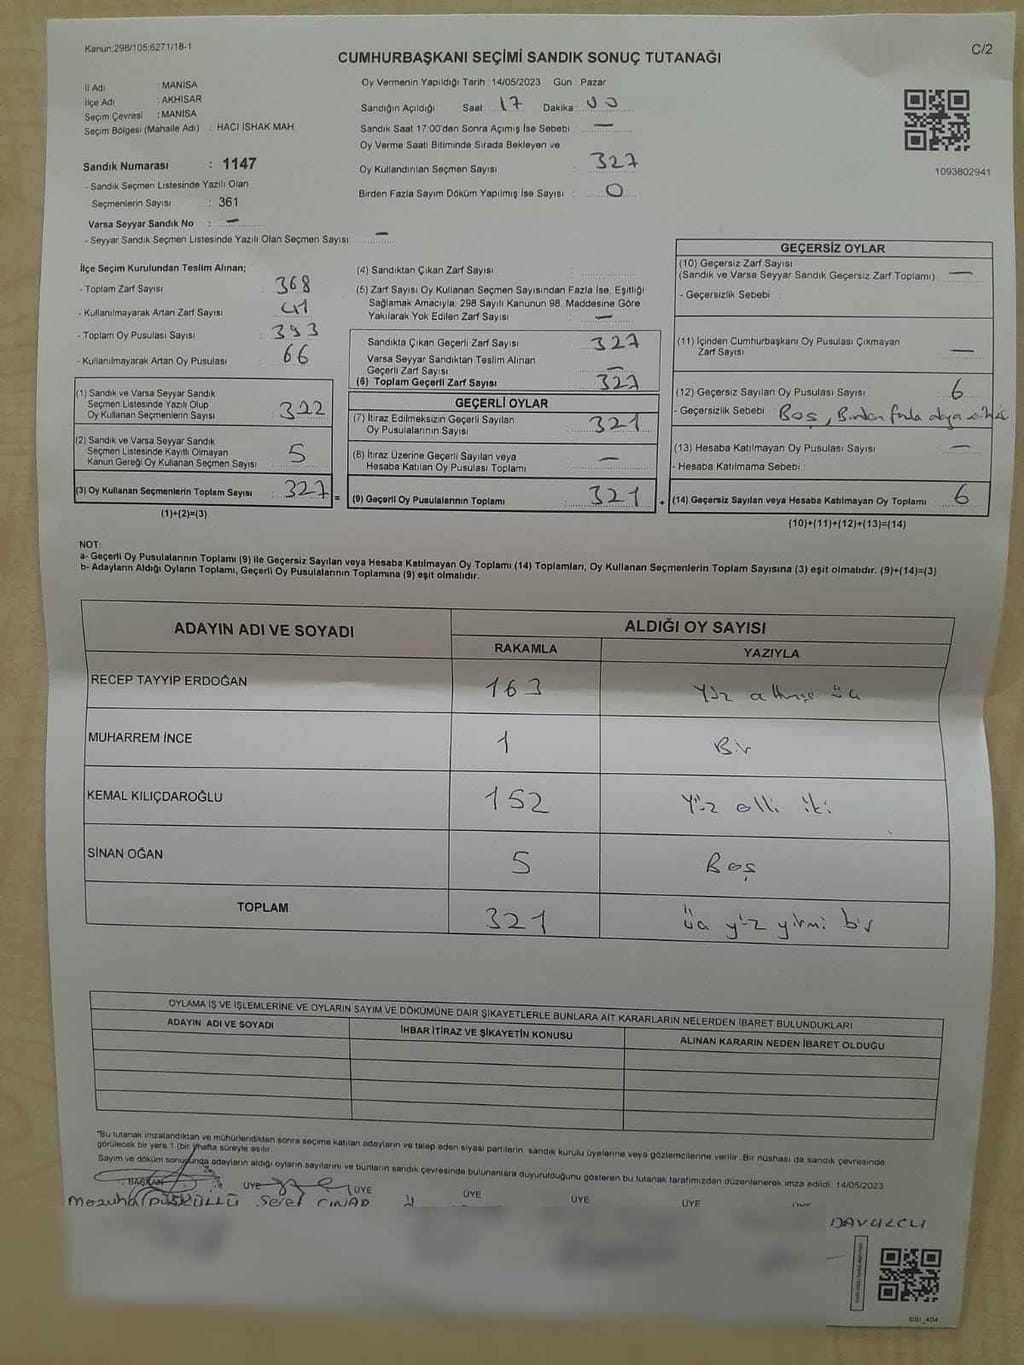 Kanun:298/105;6271/18-1
C/2
CUMHURBAŞKANI SEÇİMİ SANDIK SONUÇ TUTANAĞI
İl Adı : MANİSA
İlçe Adı : AKHİSAR
Seçim Çevresi : MANİSA
Seçim Bölgesi (Mahalle Adı) : HACI İSHAK MAH
Sandık Numarası : 1147
- Sandık Seçmen Listesinde Yazılı Olan
Seçmenlerin Sayısı : 361
Varsa Seyyar Sandık No : —
- Seyyar Sandık Seçmen Listesinde Yazılı Olan Seçmen Sayısı: —
Oy Vermenin Yapıldığı Tarih :14/05/2023 Gün : Pazar
Sandığın Açıldığı Saat 17 Dakika : 00
Sandık Saat 17:00'den Sonra Açımış İse Sebebi : —
Oy Verme Saati Bitiminde Sırada Bekleyen ve
Oy Kullandırılan Seçmen Sayısı : 327
Birden Fazla Sayım Döküm Yapılmış İse Sayısı : 0
1093802941
İlçe Seçim Kurulundan Teslim Alınan;
- Toplam Zarf Sayısı : 368
- Kullanılmayarak Artan Zarf Sayısı : 41
- Toplam Oy Pusulası Sayısı : 393
- Kullanılmayarak Artan Oy Pusulası : 66
(1) Sandık ve Varsa Seyyar Sandık
Seçmen Listesinde Yazılı Olup
Oy Kullanan Seçmenlerin Sayısı : 322
(2) Sandık ve Varsa Seyyar Sandık
Seçmen Listesinde Kayıtlı Olmayan
Kanun Gereği Oy Kullanan Seçmen Sayısı : 5
(3) Oy Kullanan Seçmenlerin Toplam Sayısı : 327 =
(1)+(2)=(3)
(4) Sandıktan Çıkan Zarf Sayısı :
(5) Zarf Sayısı Oy Kullanan Seçmen Sayısından Fazla İse, Eşitliği
Sağlamak Amacıyla, 298 Sayılı Kanunun 98. Maddesine Göre
Yakılarak Yok Edilen Zarf Sayısı : —
Sandıkta Çıkan Geçerli Zarf Sayısı : 327
Varsa Seyyar Sandıktan Teslim Alınan
Geçerli Zarf Sayısı : —
(6) Toplam Geçerli Zarf Sayısı : 327
GEÇERLİ OYLAR
(7) İtiraz Edilmeksizin Geçerli Sayılan
Oy Pusulalarının Sayısı : 321
(8) İtiraz Üzerine Geçerli Sayılan veya
Hesaba Katılan Oy Pusulası Toplamı : —
(9) Geçerli Oy Pusulalarının Toplamı : 321 +
GEÇERSİZ OYLAR
(10) Geçersiz Zarf Sayısı
(Sandık ve Varsa Seyyar Sandık Geçersiz Zarf Toplamı) : —
- Geçersizlik Sebebi :
(11) İçinden Cumhurbaşkanı Oy Pusulası Çıkmayan
Zarf Sayısı : —
(12) Geçersiz Sayılan Oy Pusulası Sayısı : 6
- Geçersizlik Sebebi : Boş, Birden fazla
(13) Hesaba Katılmayan Oy Pusulası Sayısı : —
- Hesaba Katılmama Sebebi :
(14) Geçersiz Sayılan veya Hesaba Katılmayan Oy Toplamı : 6
(10)+(11)+(12)+(13)=(14)
NOT:
a- Geçerli Oy Pusulalarının Toplamı (9) ile Geçersiz Sayılan veya Hesaba Katılmayan Oy Toplamı (14) Toplamları, Oy Kullanan Seçmenlerin Toplam Sayısına (3) eşit olmalıdır. (9)+(14)=(3)
b- Adayların Aldığı Oyların Toplamı, Geçerli Oy Pusulalarının Toplamına (9) eşit olmalıdır.
ADAYIN ADI VE SOYADI ALDIĞI OY SAYISI
RAKAMLA YAZIYLA
RECEP TAYYİP ERDOĞAN 163 Yüz altmış üç
MUHARREM İNCE 1 Bir
KEMAL KILIÇDAROĞLU 152 Yüz elli iki
SİNAN OĞAN 5 Beş
TOPLAM 321 üç yüz yirmi bir
OYLAMA İŞ VE İŞLEMLERİNE VE OYLARIN SAYIM VE DÖKÜMÜNE DAİR ŞİKAYETLERLE BUNLARA AİT KARARLARIN NELERDEN İBARET BULUNDUKLARI
ADAYIN ADI VE SOYADI İHBAR İTİRAZ VE ŞİKAYETİN KONUSU ALINAN KARARIN NEDEN İBARET OLDUĞU
*Bu tutanak imzalandıktan ve mühürlendikten sonra seçime katılan adayların ve talep eden siyasi partilerin sandık kurulu üyelerine veya gözlemcilerine verilir. Bir nüshası da sandık çevresinde
görülecek bir yere 1 (bir) hafta süreyle asılır.
Sayım ve döküm sonucunda adayların aldığı oyların sayılarını ve bunların sandık çevresinde bulunanlara duyurulduğunu gösteren bu tutanak tarafımızdan düzenlenerek imza edildi. 14/05/2023
BAŞKAN ÜYE ÜYE ÜYE ÜYE ÜYE ÜYE
PÜSKÜLLÜ ÇINAR
DAVULCU